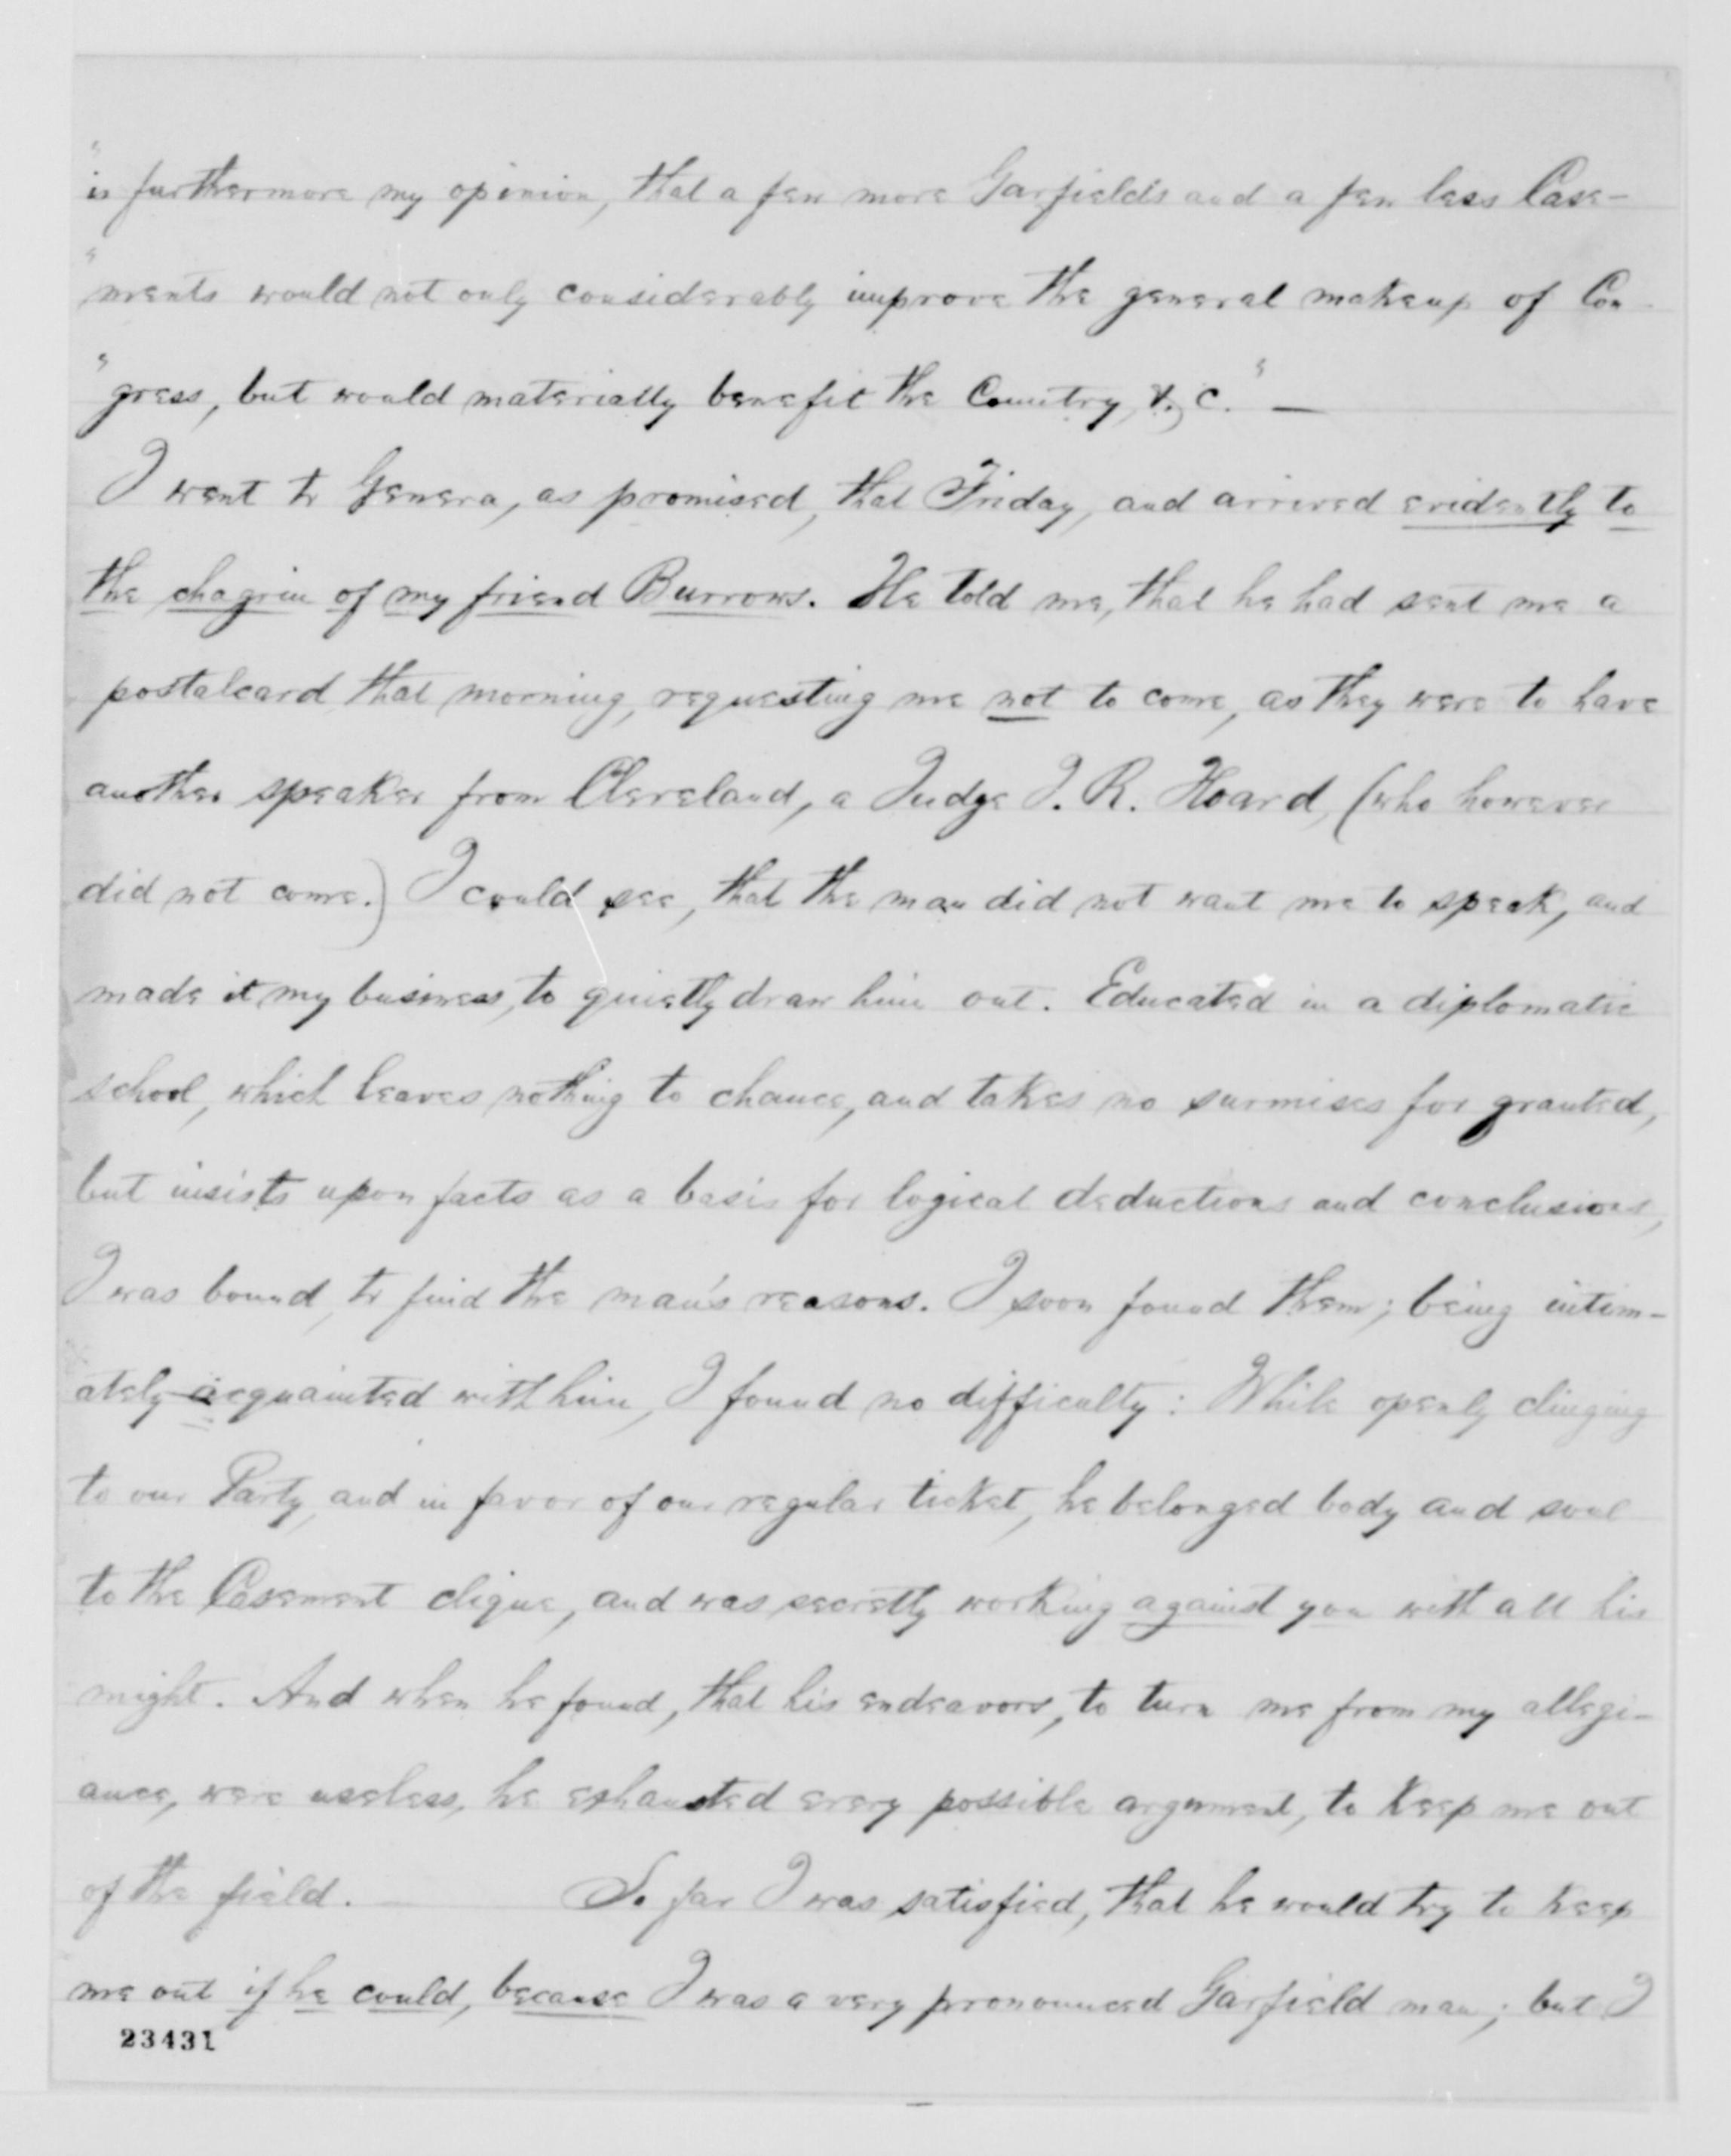 "is furthermore my opinion, that a few more Garfields and a few less Case-
"ments would not only considerably improve the general makeup of Con-
"gress, but would materially benefit the Country, &c." —
I went to Geneva, as promised, that Friday, and arrived evidently to
the chagrin of my friend Burrows. He told me, that he had sent me a
postalcard that morning, requesting me not to come, as they were to have
another speaker from Cleveland, a Judge J. R. Hoard, (who however
did not come.) I could see, that the man did not want me to speak, and
made it my business, to quietly draw him out. Educated in a diplomatic
school, which leaves nothing to chance, and takes no surmises for granted,
but insists upon facts as a basis for logical deductions and conclusions,
I was bound, to find the man's reasons. I soon found them; being intim-
ately acquainted with him, I found no difficulty: While openly clinging
to our Party, and in favor of our regular ticket, he belonged body and soul
to the Casement clique, and was secretly working against you with all his
might. And when he found, that his endeavors, to turn me from my allegi-
ance, were useless, he exhausted every possible argument, to keep me out
of the field. — So far I was satisfied, that he would try to keep
me out if he could, because I was a very pronounced Garfield man; but I
23431